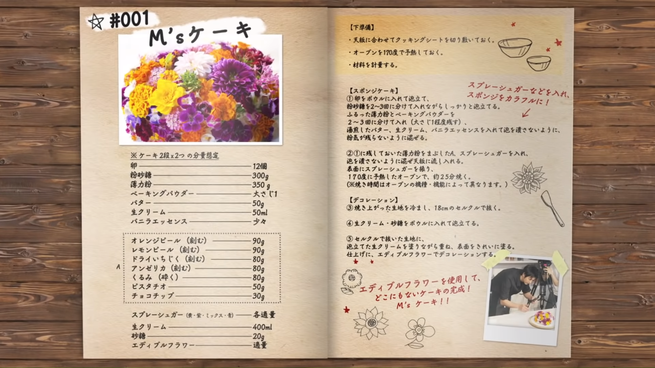 ☆ #001
M'sケーキ
※ケーキ2段×2つの分量想定
卵 12個
粉砂糖 300g
薄力粉 350g
ベーキングパウダー 大さじ1
バター 50g
生クリーム 50ml
バニラエッセンス 少々
A
オレンジピール（刻む） 90g
レモンピール（刻む） 90g
ドライいちじく（刻む） 80g
アンゼリカ（刻む） 80g
くるみ（砕く） 80g
ピスタチオ 50g
チョコチップ 30g
スプレーシュガー（黄・紫・ミックス・青） 各適量
生クリーム 400ml
砂糖 20g
エディブルフラワー 適量
【下準備】
・天板に合わせてクッキングシートを切り敷いておく。
・オーブンを170度で予熱しておく。
・材料を計量する。
スプレーシュガーなどを入れ、
スポンジをカラフルに！
【スポンジケーキ】
①卵をボウルに入れて泡立て、
粉砂糖を2〜3回に分けて入れながらしっかりと泡立てる。
ふるった薄力粉とベーキングパウダーを
2〜3回に分けて入れ（大さじ1程度残す）、
湯煎したバター、生クリーム、バニラエッセンスを入れて泡を潰さないように、
粉気が残らないように混ぜる。
②①に残しておいた薄力粉をまぶしたA、スプレーシュガーを入れ、
泡を潰さないように混ぜ天板に流し入れる。
表面にスプレーシュガーを散らし、
170度に予熱したオーブンで、約25分焼く。
（※焼き時間はオーブンの機種・機能によって異なります。）
【デコレーション】
③焼き上がった生地を冷まし、18cmのセルクルで抜く。
④生クリーム・砂糖をボウルに入れて泡立てる。
⑤セルクルで抜いた生地に、
泡立てた生クリームを塗りながら重ね、表面をきれいに塗る。
仕上げに、エディブルフラワーでデコレーションする。
エディブルフラワーを使用して、
どこにもないケーキの完成！
M's ケーキ！！